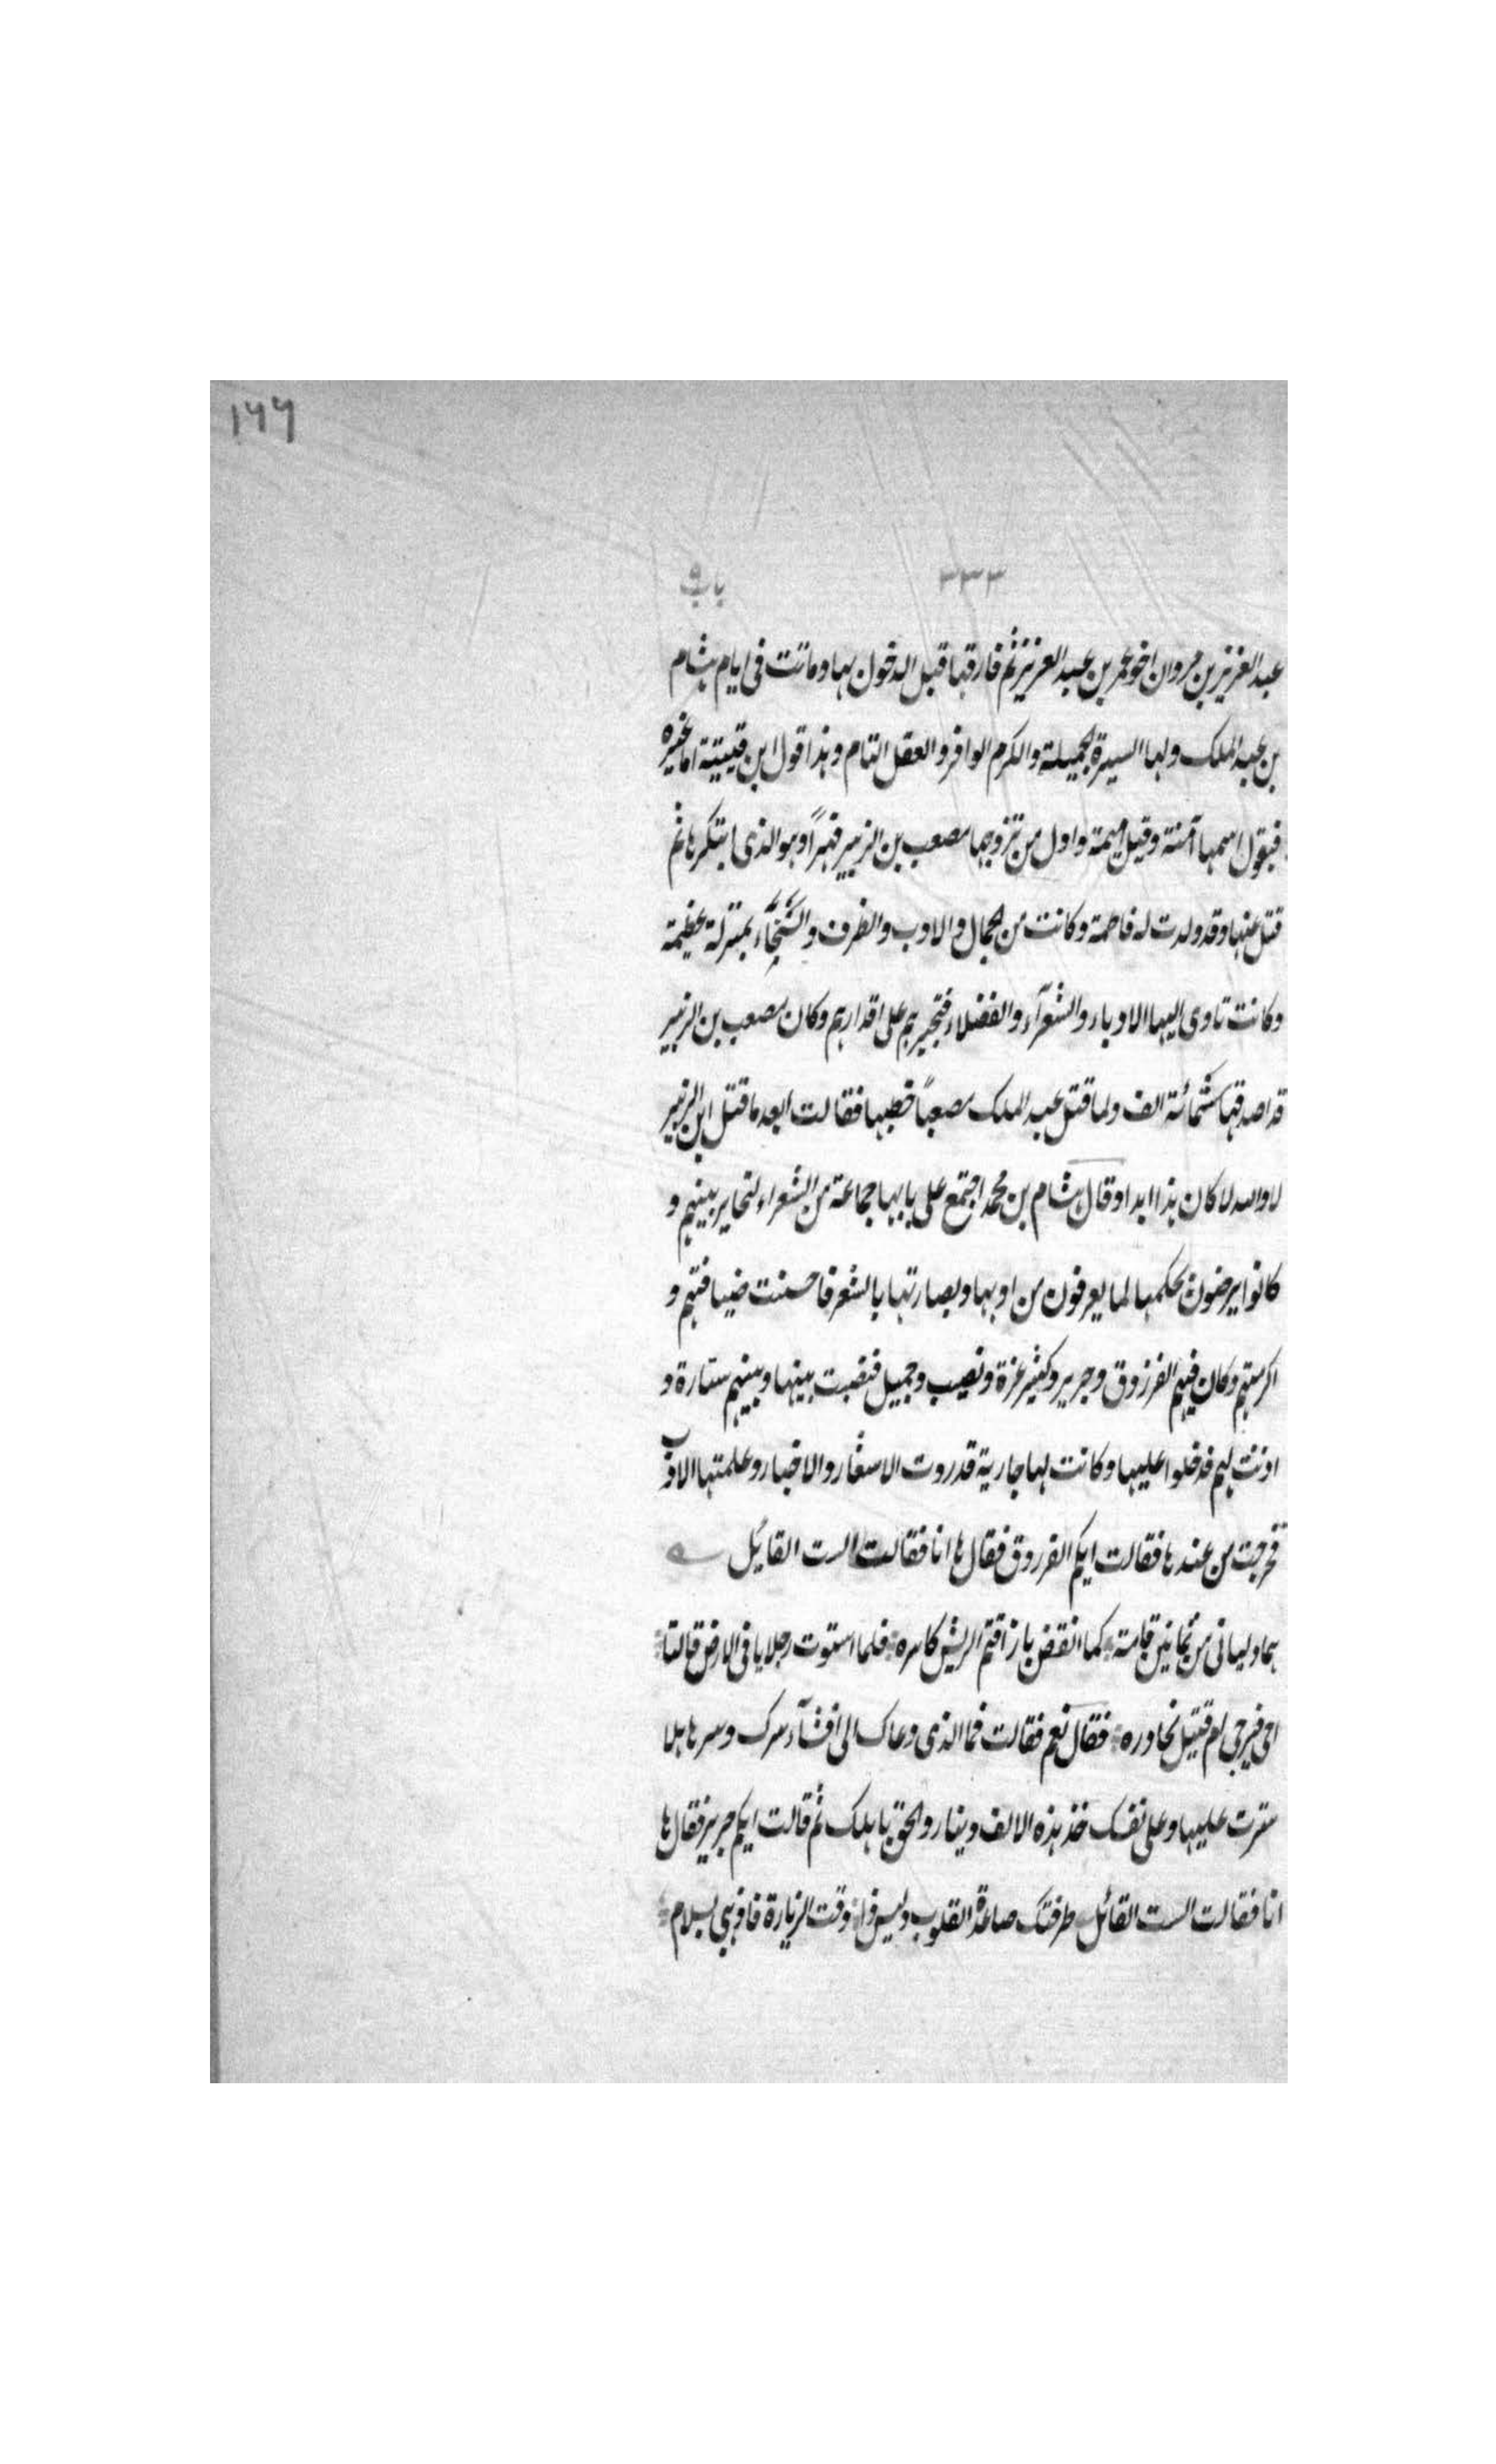 ١٦٦
٣٣٣ باب ٩
عبد العزيز بن مروان اخو عمر بن عبد العزيز ثم فارقها قبل الدخول بها وماتت فى ايام هشام
بن عبد الملك ولها السيرة الجميلة والكرم الوافر والعقل التام وهذا قول ابن قتيبة اما غيره
فيقول اسمها آمنة وقيل اميمة واول من تزوجها مصعب بن الزبير قهراً وهو الذى ابتكرها ثم
قتل عنها وقد ولدت له فاطمة وكانت من الجمال والادب والظرف والسخاء بمنزلة عظيمة
وكانت تاوى اليها الادباء والشعرآء والفضلاء فتجيزهم على اقدارهم وكان مصعب بن الزبير
قد اصدقها ستمائة الف ولما قتل عبد الملك مصعباً خطبها فقالت ابعد ما قتل ابن الزبير
لا والله لا كان هذا ابدا وقال هشام بن محمد اجتمع على بابها جماعة من الشعراء لتخاير بينهم و
كانوا يرضون بحكمها لما يعرفون من ادبها وبصارتها بالشعر فاحسنت ضيافتهم و
اكرمتهم وكان فيهم الفرزدق وجرير وكثير عزة ونصيب وجميل فنصبت بينها وبينهم ستارة و
اذنت لهم فدخلوا عليها وكانت لها جارية قد روت الاشعار والاخبار وعلمتها الادب
فخرجت من عندها فقالت ايكم الفرزدق فقال ها انا فقالت الست القائل
هما دليانى من ثمانين قامة كما انقض باز اقتم الريش كاسره فلما استوت رجلاي فى الارض قالتا
احى فيرجى ام قتيل نحاوره فقال نعم فقالت فما الذى دعاك الى افشآء سرك وسرها هلا
سترت عليها وعلى نفسك خذ هذه الالف دينار والحق باهلك ثم قالت ايكم جرير فقال ها
انا فقالت الست القائل طرقتك صائدة القلوب وليس ذا وقت الزيارة فاذهبى بسلام